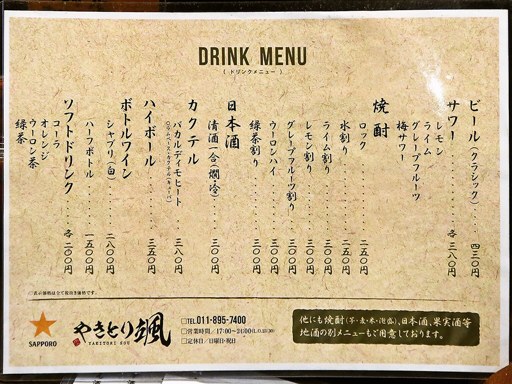 DRINK MENU
( ドリンクメニュー )
ビール(クラシック)……四三〇円
サワー……各 三八〇円
レモン
ライム
グレープフルーツ
梅サワー
焼酎
ロック……二五〇円
水割り……二五〇円
ライム割り……三〇〇円
レモン割り……三〇〇円
グレープフルーツ割り……三〇〇円
ウーロンハイ……三〇〇円
緑茶割り……三〇〇円
日本酒
清酒一合(燗・冷)……三〇〇円
カクテル
バカルディモヒート……三八〇円
ハイボール……三五〇円
ボトルワイン
シャブリ(白)……二八〇〇円
ハーフボトル……一五〇〇円
ソフトドリンク……各 二〇〇円
コーラ
オレンジ
ウーロン茶
緑茶
□表示価格は全て税抜き価格です。
SAPPORO
やきとり颯
YAKITORI SOU
□TEL.011-895-7400
□営業時間/17:00~24:00(L.O.23:30)
□定休日/日曜日・祝日
他にも焼酎(芋・麦・米・泡盛)、日本酒、果実酒等
地酒の別メニューもご用意しております。